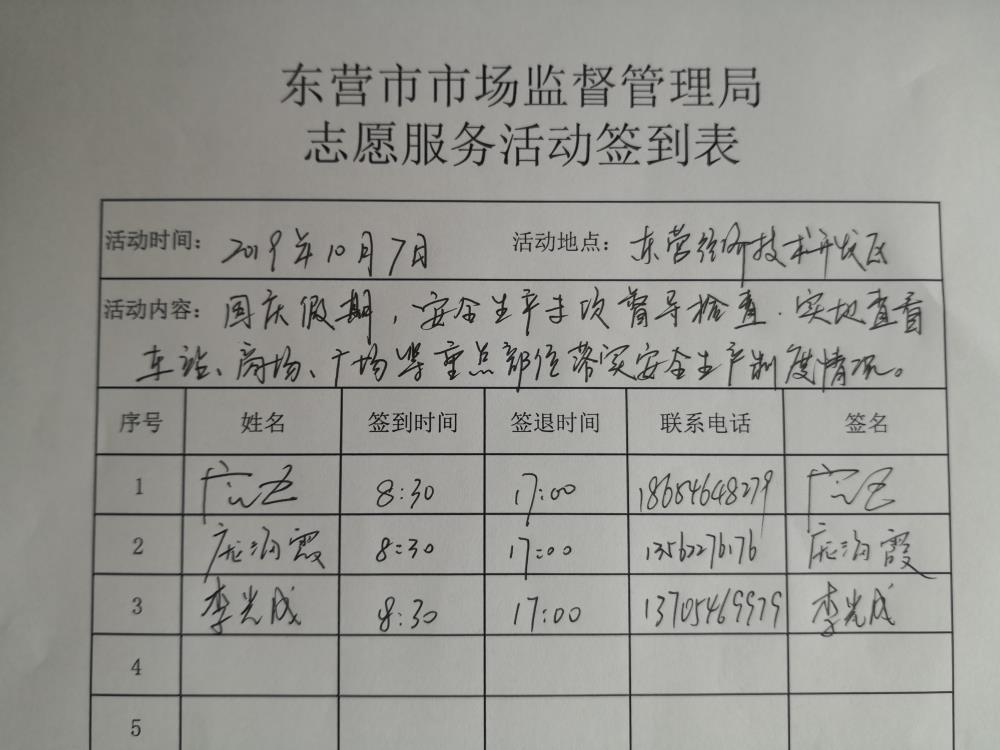 东营市市场监督管理局
志愿服务活动签到表
活动时间： 2019年10月7日 活动地点： 东营经济技术开发区
活动内容： 国庆假期，安全生产专项督导检查．实地查看
车站、商场、广场等重点部位落实安全生产制度情况。
序号 姓名 签到时间 签退时间 联系电话 签名
1 8:30 17:00 18654648279
2 庞海霞 8:30 17:00 13562276176 庞海霞
3 李光成 8:30 17:00 13705469979 李光成
4
5